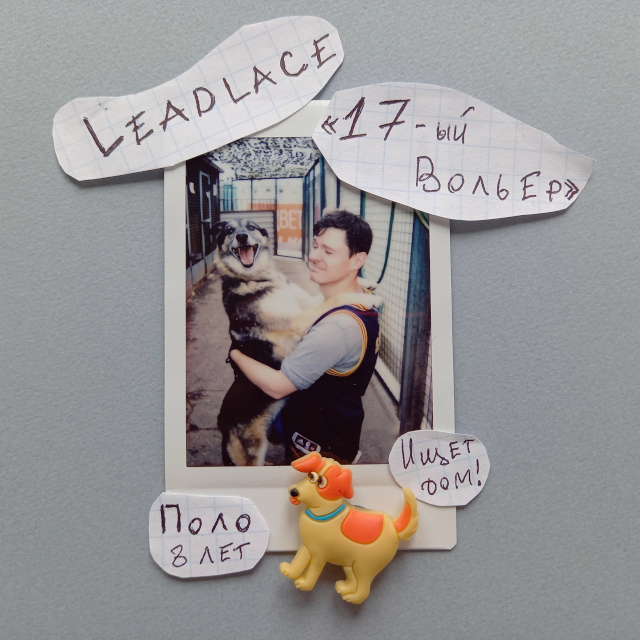 LEADLACE
«17-ый
Вольер»
ВЕТ
Ищет
дом!
Поло
8 лет